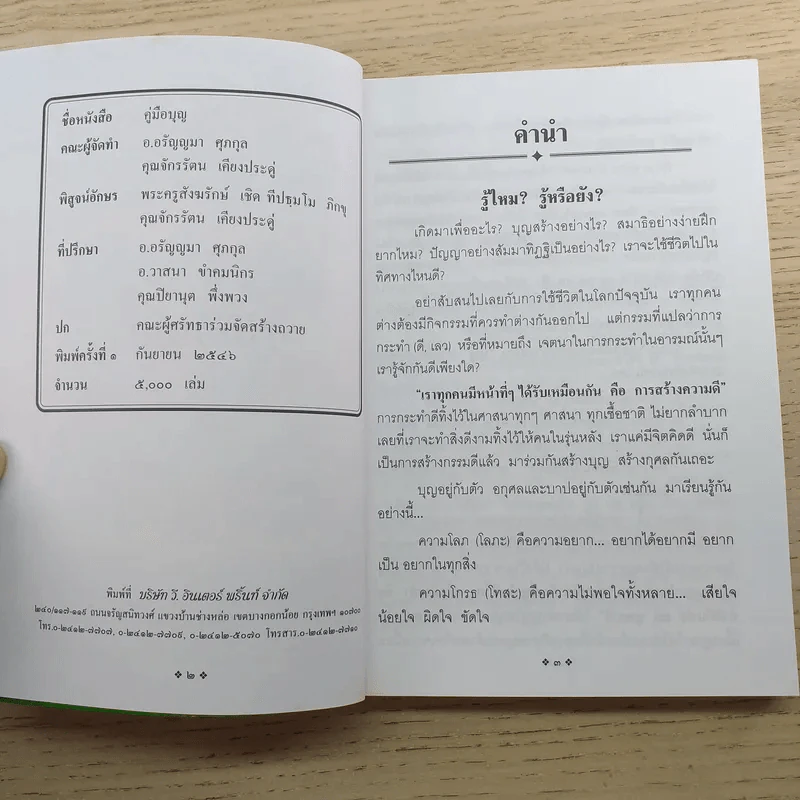 ชื่อหนังสือ คู่มือบุญ
คณะผู้จัดทำ อ.อรัญญมา ศุภกุล
คุณจักรรัตน เคียงประดู่
พิสูจน์อักษร พระครูสังฆรักษ์ เชิด ทีปธฺมโม ภิกขุ
คุณจักรรัตน เคียงประดู่
ที่ปรึกษา อ.อรัญญมา ศุภกุล
อ.วาสนา ขำคมนิกร
คุณปิยานุต พึ่งพวง
ปก คณะผู้ศรัทธาร่วมจัดสร้างถวาย
พิมพ์ครั้งที่ ๑ กันยายน ๒๕๔๖
จำนวน ๕,๐๐๐ เล่ม
พิมพ์ที่ บริษัท วี. อินเตอร์ พริ้นท์ จำกัด
๒๔๐/๑๑๗-๑๑๙ ถนนจรัญสนิทวงศ์ แขวงบ้านช่างหล่อ เขตบางกอกน้อย กรุงเทพฯ ๑๐๗๐๐
โทร.๐-๒๔๑๒-๗๗๐๗, ๐-๒๔๑๒-๗๗๐๙, ๐-๒๔๑๒-๕๐๗๐ โทรสาร.๐-๒๔๑๒-๗๗๑๐
❖ ๒ ❖
คำนำ
รู้ไหม? รู้หรือยัง?
เกิดมาเพื่ออะไร? บุญสร้างอย่างไร? สมาธิอย่างง่ายฝึก
ยากไหม? ปัญญาอย่างสัมมาทิฏฐิเป็นอย่างไร? เราจะใช้ชีวิตไปใน
ทิศทางไหนดี?
อย่าสับสนไปเลยกับการใช้ชีวิตในโลกปัจจุบัน เราทุกคน
ต่างต้องมีกิจกรรมที่ควรทำต่างกันออกไป แต่กรรมที่แปลว่าการ
กระทำ (ดี, เลว) หรือที่หมายถึง เจตนาในการกระทำในอารมณ์นั้นๆ
เรารู้จักกันดีเพียงใด?
"เราทุกคนมีหน้าที่ๆ ได้รับเหมือนกัน คือ การสร้างความดี"
การกระทำดีทิ้งไว้ในศาสนาทุกๆ ศาสนา ทุกเชื้อชาติ ไม่ยากลำบาก
เลยที่เราจะทำสิ่งดีงามทิ้งไว้ให้คนในรุ่นหลัง เราแค่มีจิตคิดดี นั่นก็
เป็นการสร้างกรรมดีแล้ว มาร่วมกันสร้างบุญ สร้างกุศลกันเถอะ
บุญอยู่กับตัว อกุศลและบาปอยู่กับตัวเช่นกัน มาเรียนรู้กัน
อย่างนี้...
ความโลภ (โลภะ) คือความอยาก... อยากได้อยากมี อยาก
เป็น อยากในทุกสิ่ง
ความโกรธ (โทสะ) คือความไม่พอใจทั้งหลาย... เสียใจ
น้อยใจ ผิดใจ ขัดใจ
❖ ๓ ❖